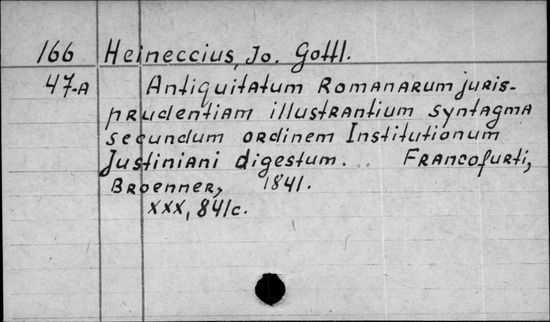 166 Heineccius, Jo. Gottl.
47-A Antiquitatum Romanarum juris-
prudentiam illustrantium syntagma
secundum ordinem Institutionum
Justiniani digestum... Francofurti,
Broenner, 1841.
XXX, 841c.